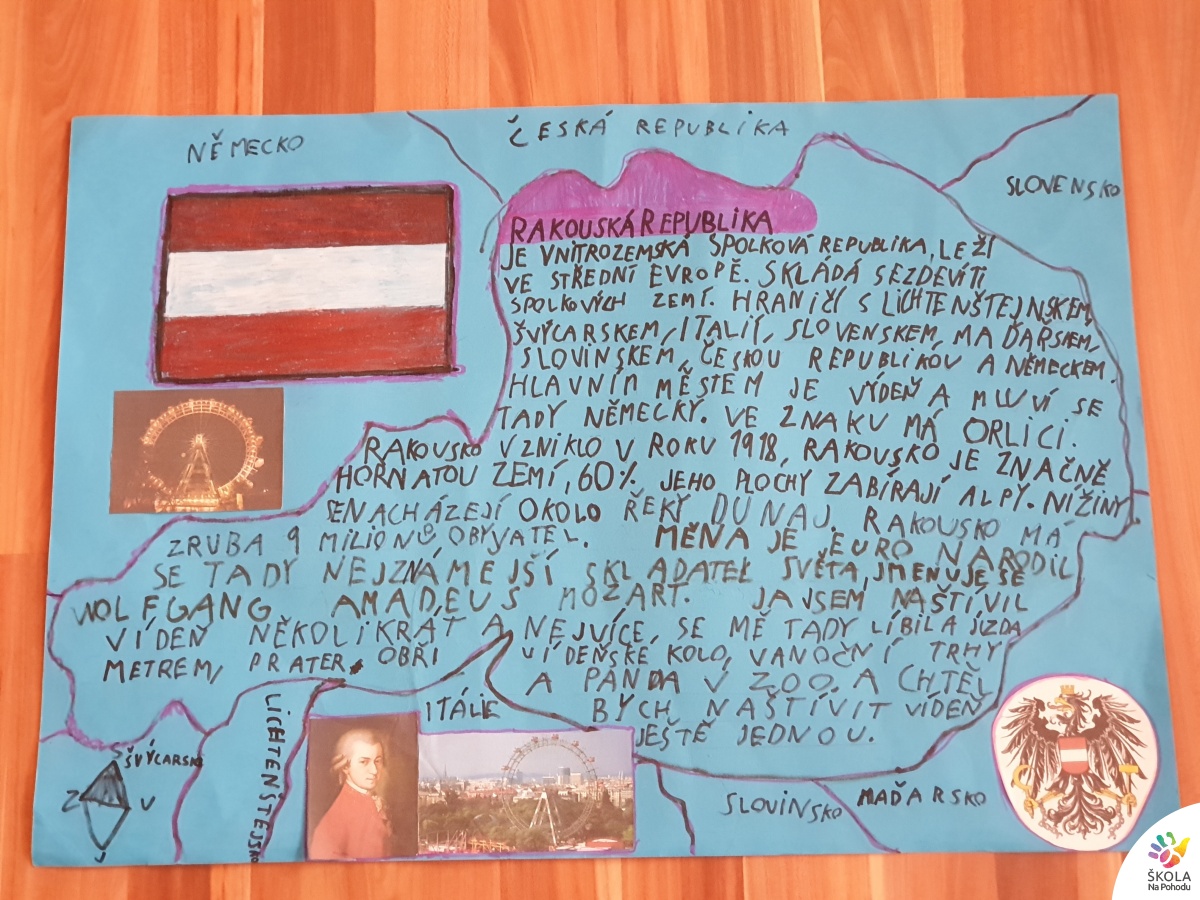 NĚMECKO
ČESKÁ REPUBLIKA
SLOVENSKO
RAKOUSKÁ REPUBLIKA
JE VNITROZEMSKÁ SPOLKOVÁ REPUBLIKA, LEŽÍ
VE STŘEDNÍ EVROPĚ. SKLÁDÁ SE Z DEVÍTI
SPOLKOVÝCH ZEMÍ. HRANIČÍ S LICHTENŠTEJNSKEM,
ŠVÝCARSKEM, ITALIÍ, SLOVENSKEM, MAĎARSKEM,
SLOVINSKEM, ČESKOU REPUBLIKOU A NĚMECKEM.
HLAVNÍM MĚSTEM JE VÍDEŇ A MLUVÍ SE
TADY NĚMECKY. VE ZNAKU MÁ ORLICI.
RAKOUSKO VZNIKLO V ROKU 1918, RAKOUSKO JE ZNAČNĚ
HORNATOU ZEMÍ, 60% JEHO PLOCHY ZABÍRAJÍ ALPY. NÍŽINY
SE NACHÁZEJÍ OKOLO ŘEKY DUNAJ. RAKOUSKO MÁ
ZRUBA 9 MILIONŮ OBYVATEL. MĚNA JE EURO NARODIL
SE TADY NEJZNÁMEJŠÍ SKLADATEL SVĚTA, JMENUJE SE
WOLFGANG AMADEUS MOZART. JA JSEM NAŠTÍVIL
VÍDEŇ NĚKOLIKRÁT A NEJVÍCE, SE MĚ TADY LÍBILA JÍZDA
METREM, PRATER, OBŘI VÍDEŇSKÉ KOLO, VANOČNÍ TRHY
A PANDA V ZOO. A CHTĚL
BYCH NAŠTÍVIT VÍDEŇ
JEŠTĚ JEDNOU.
ITÁLIE
LICHTENŠTEJSKO
ŠVÝCARSKO
Z V
J
SLOVINSKO
MAĎARSKO
ŠKOLA
Na Pohodu